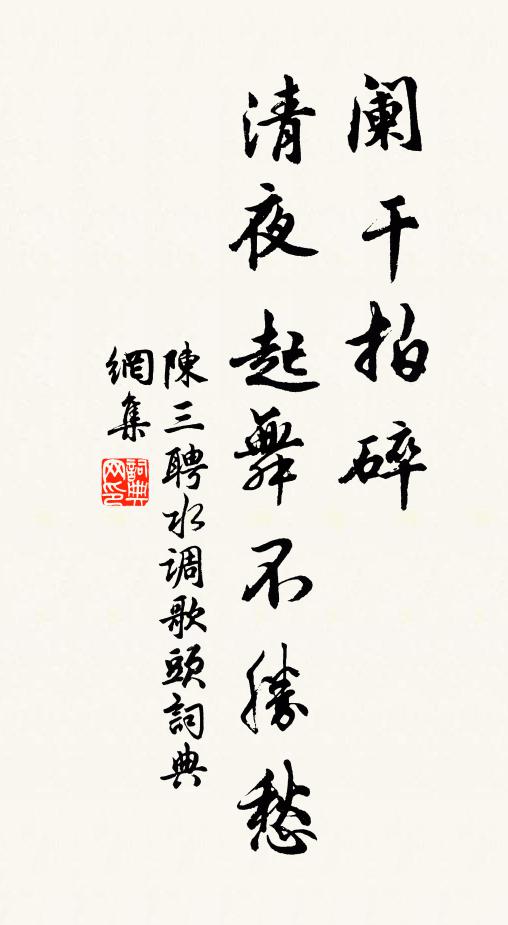 阑干拍碎
清夜起舞不勝愁
陳三聘水调歌頭詞典
網集
詞典網印